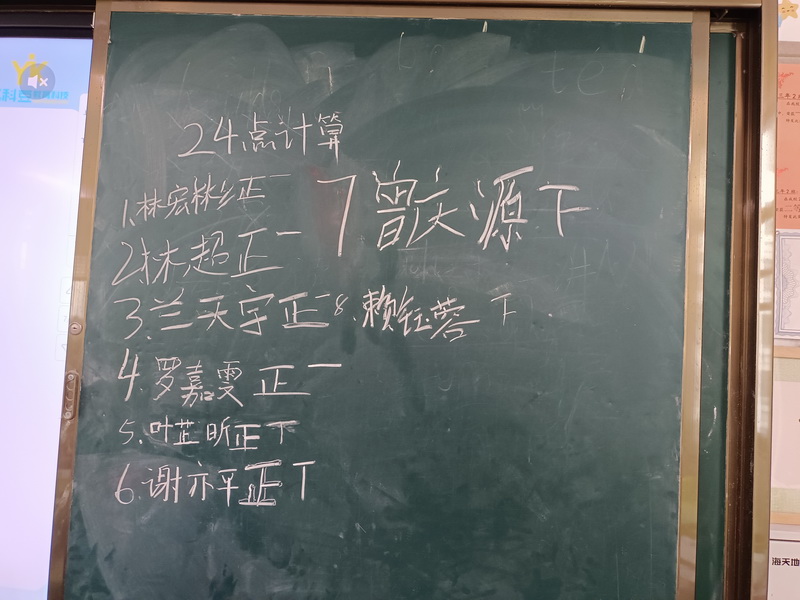 24点计算
1.林宏林正一
2.林超正一
3.兰天宇正一
4.罗嘉雯正一
5.叶芷昕正下
6.谢亦平正丅
7曾庆源下
8.赖钰蓉下
海天地